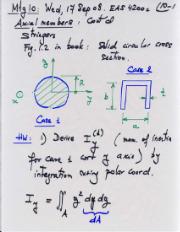 Mtg 10: Wed, 17 Sep 08. EAS 4200C (10-1
Axial members. Cont'd
Stringers
Fig. 1.2 in book: Solid circular cross section.
Case 2
z
y
b
t
a
Case 1
HW: 1) Derive I_y^(1) (mom. of inertia
for case 1 wrt y axis) by
integration using polar coord.
I_y = ∬_A z² dy dz
dA